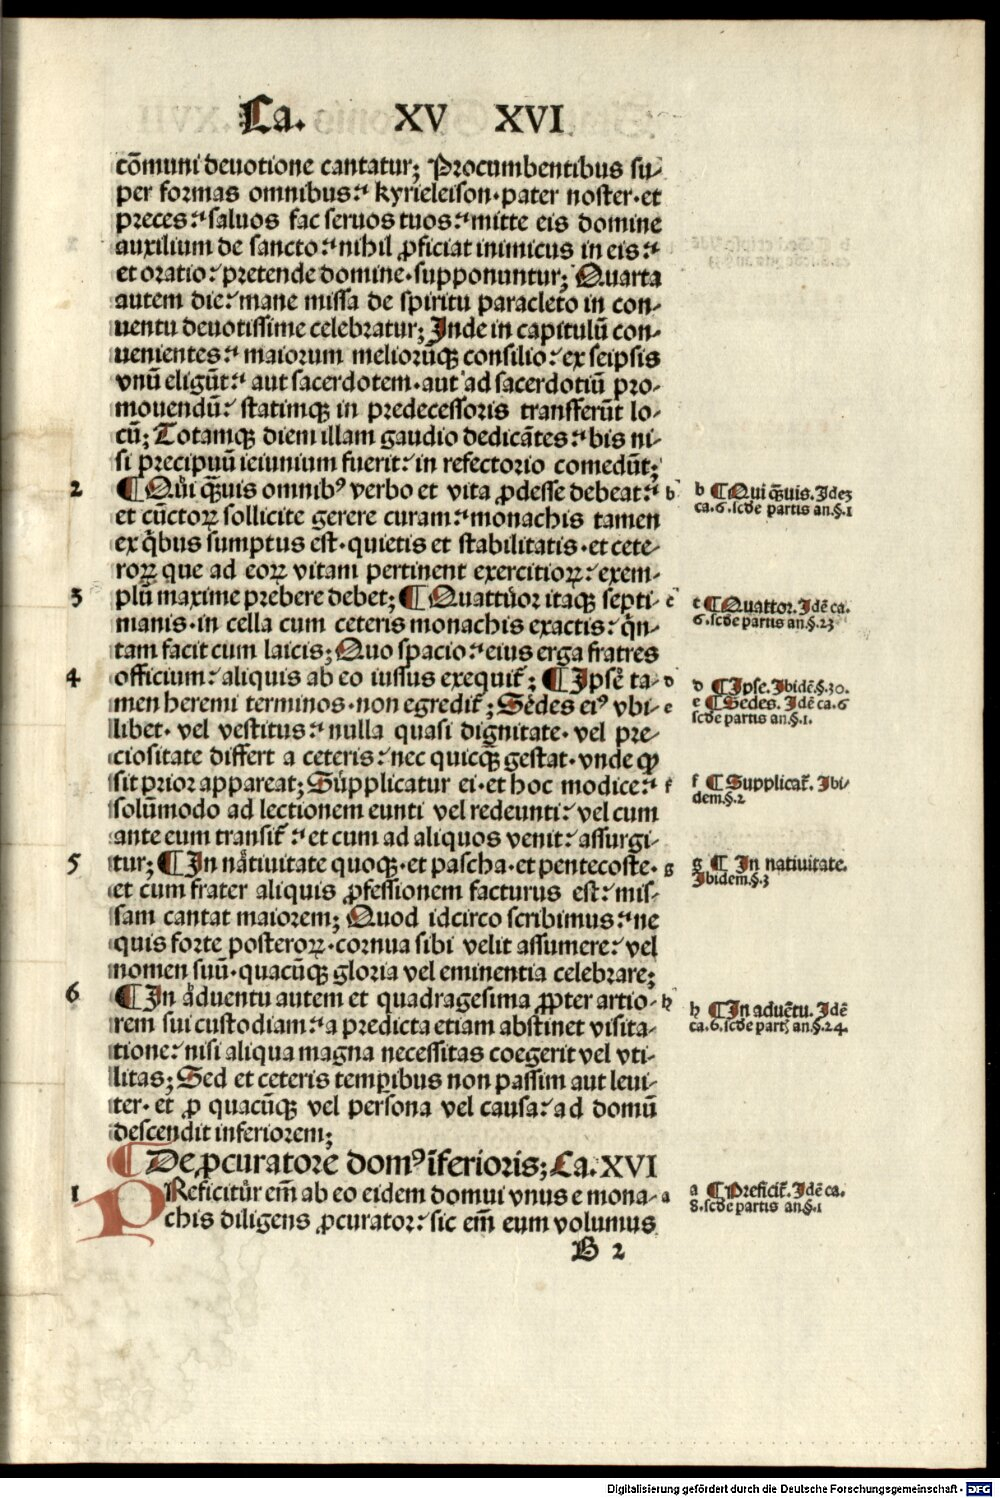 Ca. XV XVI
cōmuni deuotione cantatur; Procumbentibus su-
per formas omnibus: kyrieleison·pater noster·et
preces: saluos fac seruos tuos: mitte eis domine
auxilium de sancto: nihil ꝓficiat inimicus in eis:
et oratio: pretende domine·supponuntur; Quarta
autem die: mane missa de spiritu paracleto in con-
uentu deuotissime celebratur; Inde in capitulū con-
uenientes: maiorum meliorūqꝫ consilio: ex seipsis
vnū eligūt: aut sacerdotem·aut ad sacerdotiū pro-
mouendū: statimqꝫ in predecessoris transferūt lo-
cū; Totamqꝫ diem illam gaudio dedicātes: bis ni-
si precipuū ieiunium fuerit: in refectorio comedūt;
2 ¶ Qui qꝫ̄uis omnibꝰ verbo et vita ꝓdesse debeat: b
et cūctoꝝ sollicite gerere curam: monachis tamen
ex q̄bus sumptus est·quietis et stabilitatis·et cete-
roꝝ que ad eoꝝ vitam pertinent exercitioꝝ: exem-
3 plū maxime prebere debet; ¶ Quattuor itaqꝫ septi- c
manis·in cella cum ceteris monachis exactis: q̄n-
tam facit cum laicis; Quo spacio: eius erga fratres
4 officium: aliquis ab eo iussus exequit̄; ¶ Ipse ta- d
men heremi terminos·non egredit̄; Sedes eiꝰ vbi- e
libet·vel vestitus: nulla quasi dignitate·vel pre-
ciositate differt a ceteris: nec quicqꝫ̄ gestat·vnde ꝙ
sit prior appareat; Supplicatur ei·et hoc modice: f
solūmodo ad lectionem eunti vel redeunti: vel cum
ante eum transit̄: et cum ad aliquos venit: assurgi-
5 tur; ¶ In natiuitate quoqꝫ·et pascha·et pentecoste· g
et cum frater aliquis ꝓfessionem facturus est: mis-
sam cantat maiorem; Quod idcirco scribimus: ne
quis forte posteroꝝ·cornua sibi velit assumere: vel
nomen suū·quacūqꝫ gloria vel eminentia celebrare;
6 ¶ In aduentu autem et quadragesima ꝓpter artio- h
rem sui custodiam: a predicta etiam abstinet visita-
tione: nisi aliqua magna necessitas coegerit vel vti-
litas; Sed et ceteris temꝑibus non passim aut leui-
ter·et ꝓ quacūqꝫ vel persona vel causa: ad domū
descendit inferiorem;
¶ De ꝓcuratore domꝰ īferioris; Ca. XVI
1 PReficitur em̄ ab eo eidem domui vnus e mona- a
chis diligens ꝓcurator: sic em̄ eum volumus
B 2
b ¶ Qui qꝫ̄uis. Ideꝫ
ca.6.scḋe partis an.§.1
c ¶ Quattor. Idē ca.
6.scḋe partis an.§.23
d ¶ Ipse. Ibidē.§.30.
e ¶ Sedes. Idē ca.6
scḋe partis an.§.1.
f ¶ Supplicat̄. Ibi-
dem.§.2
g ¶ In natiuitate.
Ibidem.§.3
h ¶ In aduētu. Idē
ca.6.scḋe part; an.§.24.
a ¶ Preficit̄. Idē ca.
8.scḋe partis an§.1
Digitalisierung gefördert durch die Deutsche Forschungsgemeinschaft - DFG